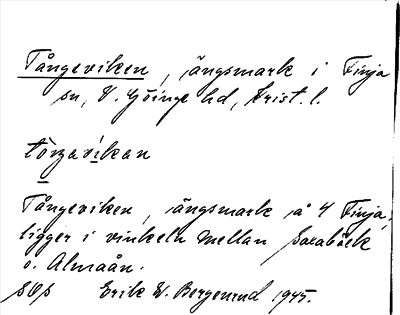 Tångeviken, ängsmark i Finja
sn, V. Göinge hd, Krist. l.
Tångeviken, ängsmark å 4 Finja,
ligger i vinkeln mellan
o. Almaån.
Erik W. Bergenrud 1945.